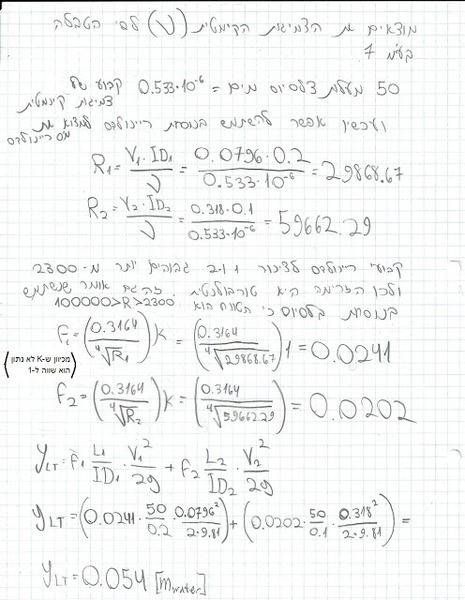 מוצאים את הצמיגות הקינמטית (ν) לפי הטבלה
בעמ' 7
50 מעלות צלסיוס מים = 0.533·10⁻⁶ קבוע של
צמיגות קינמטית
ועכשיו אפשר להשתמש בנוסחת ריינולדס למצוא את
מס ריינולדס
R₁ = V₁·ID₁/ν = 0.0796·0.2/0.533·10⁻⁶ = 29868.67
R₂ = V₂·ID₂/ν = 0.318·0.1/0.533·10⁻⁶ = 59662.29
קבועי ריינולדס לצינור 1 ו-2 גבוהים יותר מ-2300
ולכן הזרימה היא טורבולנטית. זה גם אומר שנשתמש
בנוסחת בלסיוס כי הטווח הוא 100000>R>2300
f₁ = (0.3164/⁴√R₁)K = (0.3164/⁴√29868.67)1 = 0.0241
(מכיוון ש-K לא נתון
הוא שווה ל-1)
f₂ = (0.3164/⁴√R₂)K = (0.3164/⁴√59662.29) = 0.0202
y_LT = f₁ L₁/ID₁ · V₁²/2g + f₂ L₂/ID₂ · V₂²/2g
y_LT = (0.0241·50/0.2·0.0796²/2·9.81) + (0.0202·50/0.1·0.318²/2·9.81) =
y_LT = 0.054 [m_water]